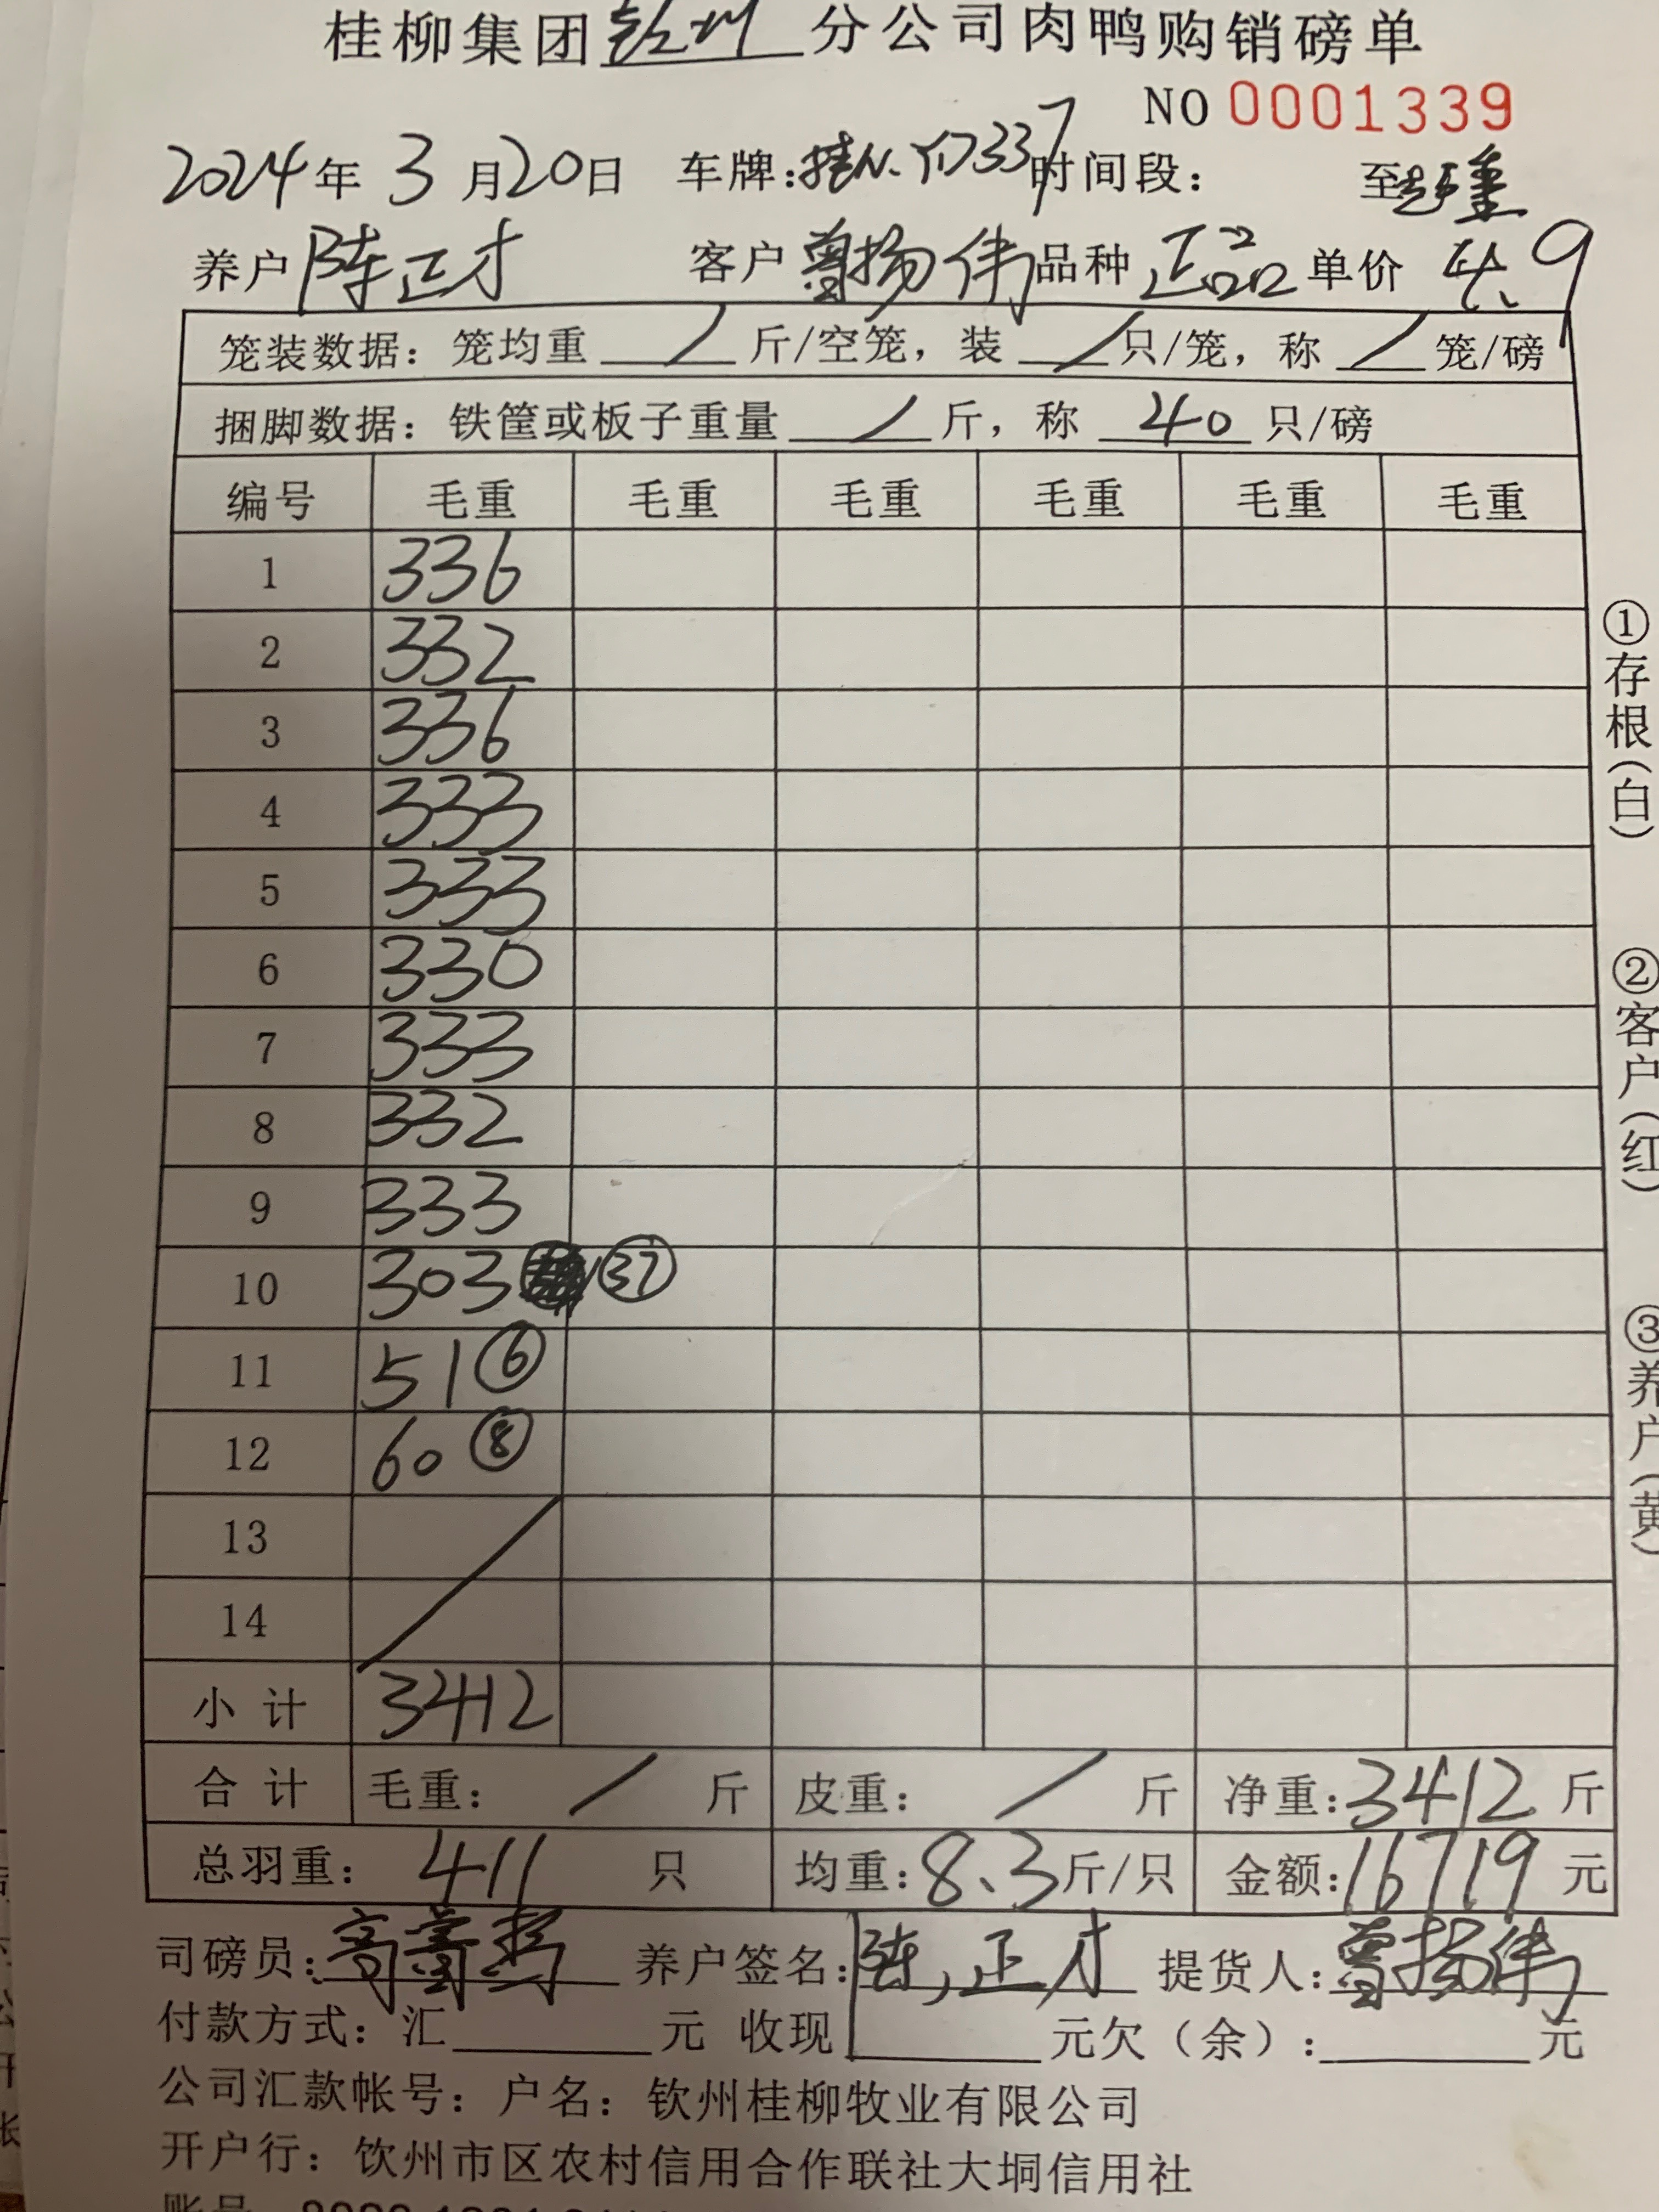 桂柳集团钦州分公司肉鸭购销磅单
NO 0001339
2024年 3 月20日 车牌: 时间段: 至
养户 陈正才 客户 曾扬伟 品种 正品 单价 4.9
笼装数据: 笼均重 / 斤/空笼, 装 / 只/笼, 称 / 笼/磅
捆脚数据: 铁筐或板子重量 / 斤, 称 40 只/磅
编号 毛重 毛重 毛重 毛重 毛重 毛重
1 336
2 332
3 336
4 333
5 333
6 330
7 333
8 332
9 333
10 303 ㊲
11 51 ⑥
12 60 ⑧
13
14
小 计 3412
合 计 毛重: / 斤 皮重: / 斤 净重: 3412 斤
总羽重: 411 只 均重: 8.3 斤/只 金额: 16719 元
司磅员: 养户签名: 陈正才 提货人: 曾扬伟
付款方式: 汇 元 收现 元欠(余): 元
公司汇款帐号: 户名: 钦州桂柳牧业有限公司
开户行: 钦州市区农村信用合作联社大垌信用社
①存根(白)
②客户(红)
③养户(黄)